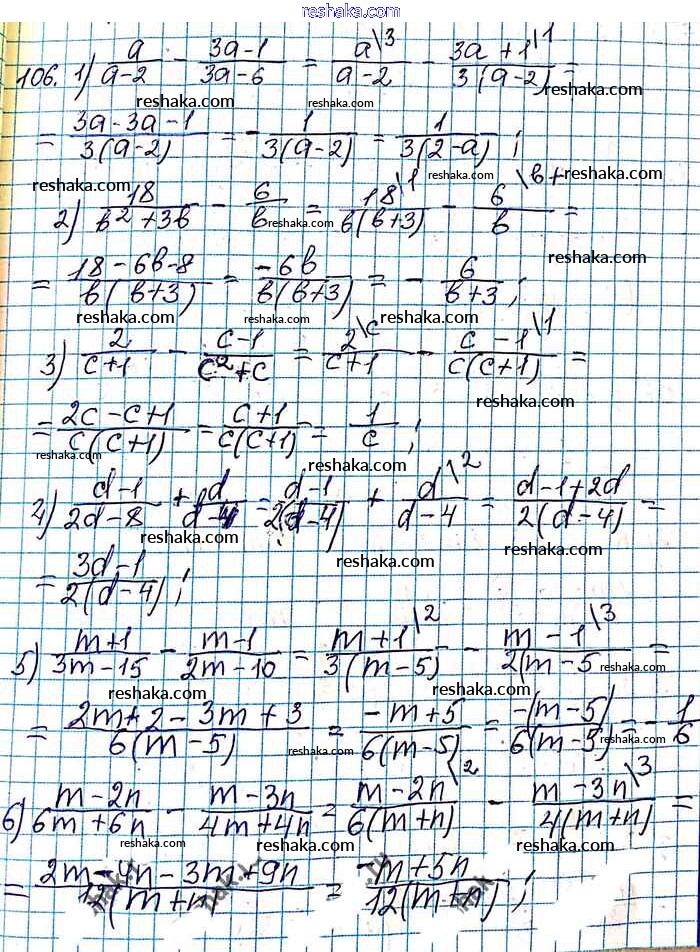 reshaka.com
106. 1) a/(a-2) - (3a-1)/(3a-6) = a\3/(a-2) - (3a+1\1)/(3(a-2)) =
reshaka.com reshaka.com reshaka.com
= (3a-3a-1)/(3(a-2)) = -1/(3(a-2)) = 1/(3(2-a));
reshaka.com reshaka.com reshaka.com
2) 18/(в²+3в) - 6/в = 18\1/(в(в+3)) - 6\в+/в =
reshaka.com reshaka.com
= (18-6в-8)/(в(в+3)) = -6в/(в(в+3)) = -6/(в+3);
reshaka.com reshaka.com
3) 2/(c+1) - (c-1)/(c²+c) = 2\c/(c+1) - (c-1\1)/(c(c+1)) =
reshaka.com
= (2c-c+1)/(c(c+1)) = (c+1)/(c(c+1)) = 1/c;
reshaka.com reshaka.com
4) (d-1)/(2d-8) + d/(d-4) = (d-1)/(2(d-4)) + d\2/(d-4) = (d-1+2d)/(2(d-4)) =
reshaka.com reshaka.com
= (3d-1)/(2(d-4));
reshaka.com
5) (m+1)/(3m-15) - (m-1)/(2m-10) = (m+1\2)/(3(m-5)) - (m-1\3)/(2(m-5 =
reshaka.com reshaka.com reshaka.com
= (2m+2-3m+3)/(6(m-5)) = (-m+5)/(6(m-5)) = -(m-5)/(6(m-5)) = -1/6
reshaka.com reshaka.com
6) (m-2n)/(6m+6n) - (m-3n)/(4m+4n) = (m-2n\2)/(6(m+n)) - (m-3n\3)/(4(m+n)) =
reshaka.com reshaka.com reshaka.com
= (2m-4n-3m+9n)/(12(m+n)) = (-m+5n)/(12(m+n));